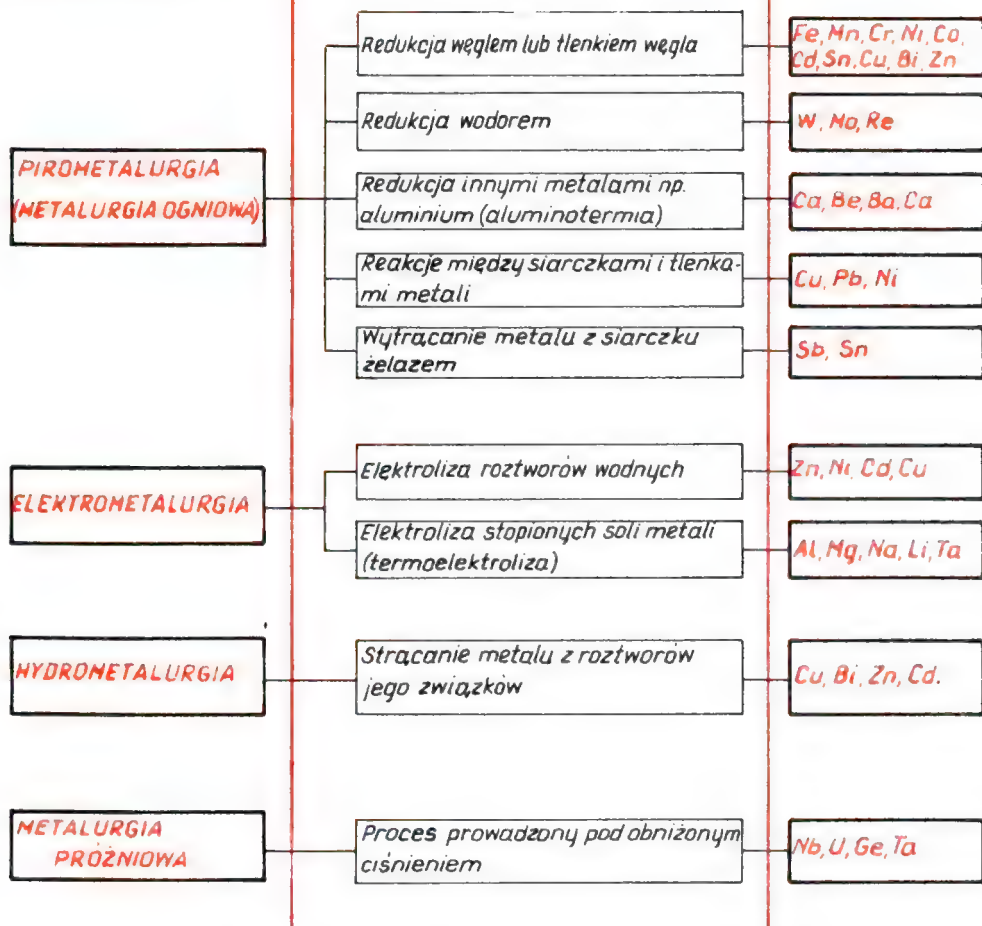 PIROMETALURGIA
(METALURGIA OGNIOWA)
Redukcja węglem lub tlenkiem węgla
Fe, Mn, Cr, Ni, Co,
Cd, Sn, Cu, Bi, Zn
Redukcja wodorem
W, Mo, Re
Redukcja innymi metalami np.
aluminium (aluminotermia)
Ca, Be, Ba, Ca
Reakcje między siarczkami i tlenka-
mi metali
Cu, Pb, Ni
Wytrącanie metalu z siarczku
żelazem
Sb, Sn
ELEKTROMETALURGIA
Elektroliza roztworów wodnych
Zn, Ni, Cd, Cu
Elektroliza stopionych soli metali
(termoelektroliza)
Al, Mg, Na, Li, Ta
HYDROMETALURGIA
Strącanie metalu z roztworów
jego związków
Cu, Bi, Zn, Cd.
METALURGIA
PRÓŻNIOWA
Proces prowadzony pod obniżonym
ciśnieniem
Nb, U, Ge, Ta